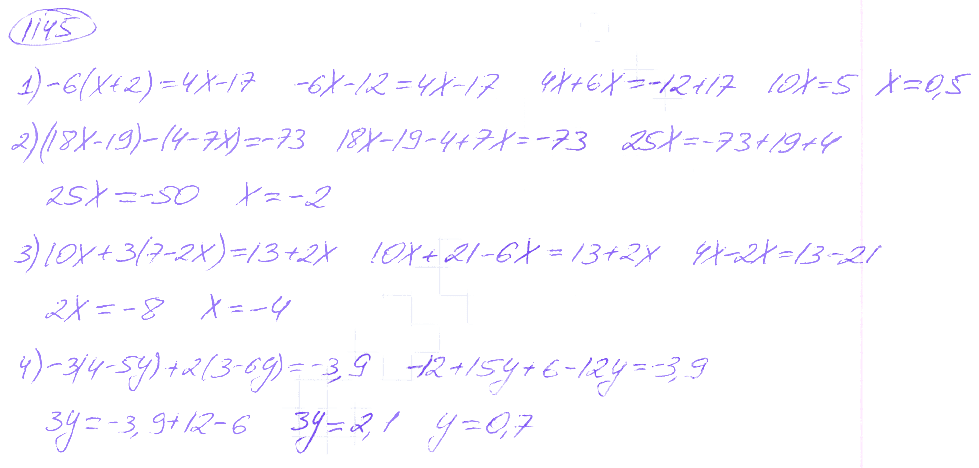 1145
1) -6(x+2)=4x-17 -6x-12=4x-17 4x+6x=-12+17 10x=5 x=0,5
2) (18x-19)-(4-7x)=-73 18x-19-4+7x=-73 25x=-73+19+4
25x=-50 x=-2
3) 10x+3(7-2x)=13+2x 10x+21-6x=13+2x 4x-2x=13-21
2x=-8 x=-4
4) -3(4-5y)+2(3-6y)=-3,9 -12+15y+6-12y=-3,9
3y=-3,9+12-6 3y=2,1 y=0,7